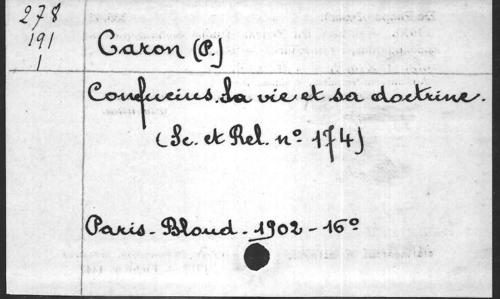 278
191
1
Caron (P.)
Confucius. Sa vie et sa doctrine.
(Sc. et Rel. nº 174)
Paris - Bloud - 1902 - 16º